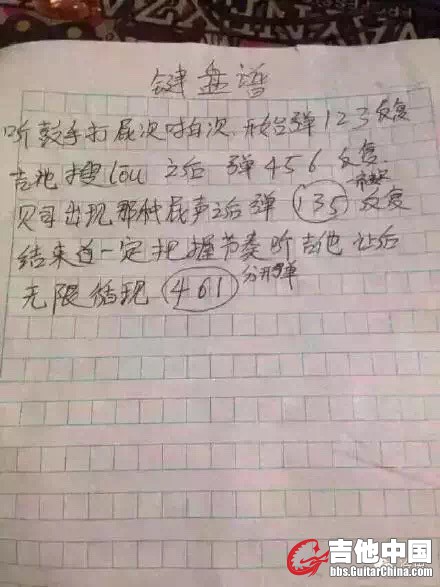 键盘谱
听鼓手打屁次咑次,开始弹123反复
吉他搜lou之后 弹456反复
贝司出现那种屁声之后弹 135 反复
结束道一定把握节奏听吉他 让后
无限循现 461 分开弹
吉他中国
bbs.GuitarChina.com